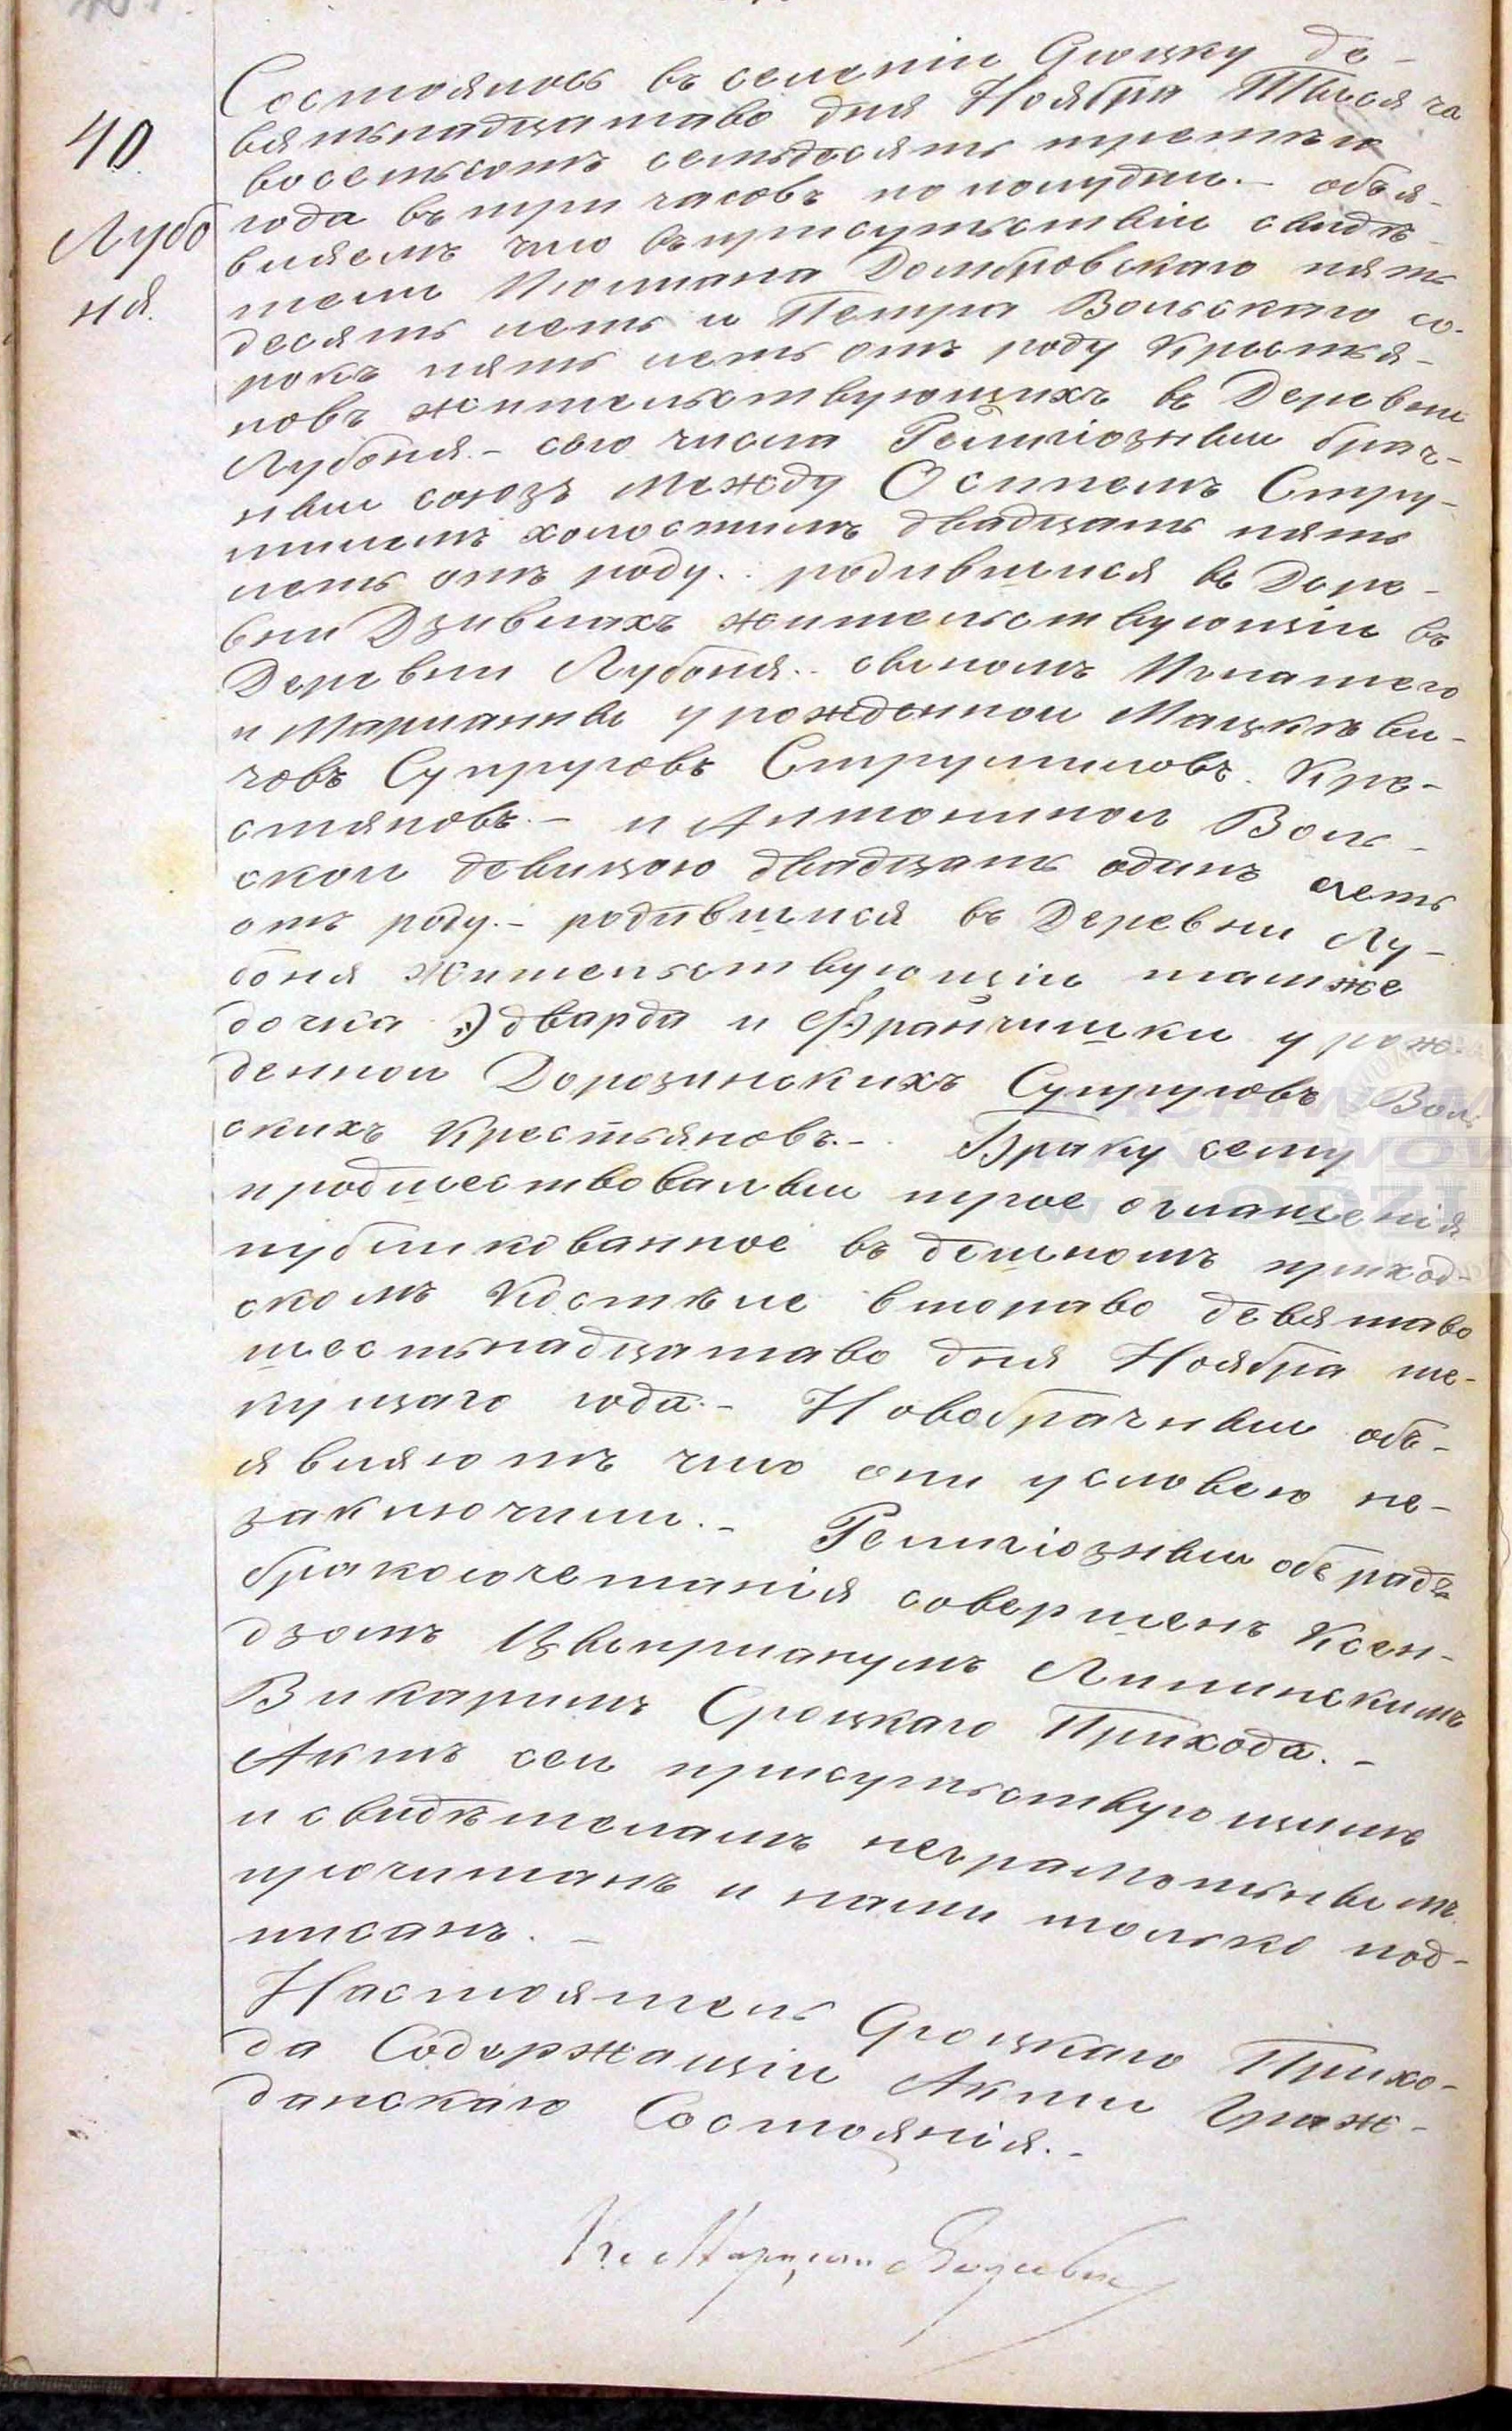 40.
Лубо
ня.
Состоялось въ селеніи Сроцку де-
вятьнадцатаво дня Ноября Тысяча
восемьсотъ семьдесять третъго
года въ три часовъ по полудни.- объя-
вляемъ что въ присутьствіи свидѣ-
тели Юлиана Домбровскаго пять
десять леть и Петра Вольскаго со-
рокъ пять леть отъ роду Крестья-
новъ жительствующихъ въ Деревни
Лубоня.- сего числа Религіозный брач-
ный союзъ между Осипемъ Стру-
милемъ холостимъ двадцать пять
леть отъ роду.. родившийся въ Дере-
вни Дзивлахъ жительствующій въ
Деревни Лубоня.. сыномъ Игнатего
и Марианны урожденной Мацкѣви-
човъ Супруговъ Струмиловъ. Кре-
стяновъ.- и Антониной Воль-
ской девицою двадцать одинъ леть
отъ роду.- родившися въ Деревни Лу-
боня Жительствующій также
дочка Эдварда и Францишки урож-
денной Дорозинскихъ Супруговъ Воль
скихъ Крестьяновъ.- Браку сему
предшествовалъы трое оглашенія
публикованное въ дешномъ приход-
скомъ Костѣле втораво девятаво
шестьнадцатаво дня Ноября те-
кущаго года.- Новобрачныи объ-
являютъ что они условею не-
заключили.- Религіозныи оберядъ
бракосочетанія совершенъ Ксен-
дзомъ Цыприанумъ Липинскимъ
Викаримъ Сроцкаго Прихода.-
Актъ сеи присутьствующимъ
и свидѣтелямъ неграмотьнымъ
прочитанъ и нами только под-
писанъ.-
Настоятель Сроцкаго Прихо-
да Содержащіи Акти Граж-
данскаго Состоянія.-
Кс Марцели
ARCHIWUM
PAŃSTWOWE
W ŁODZI